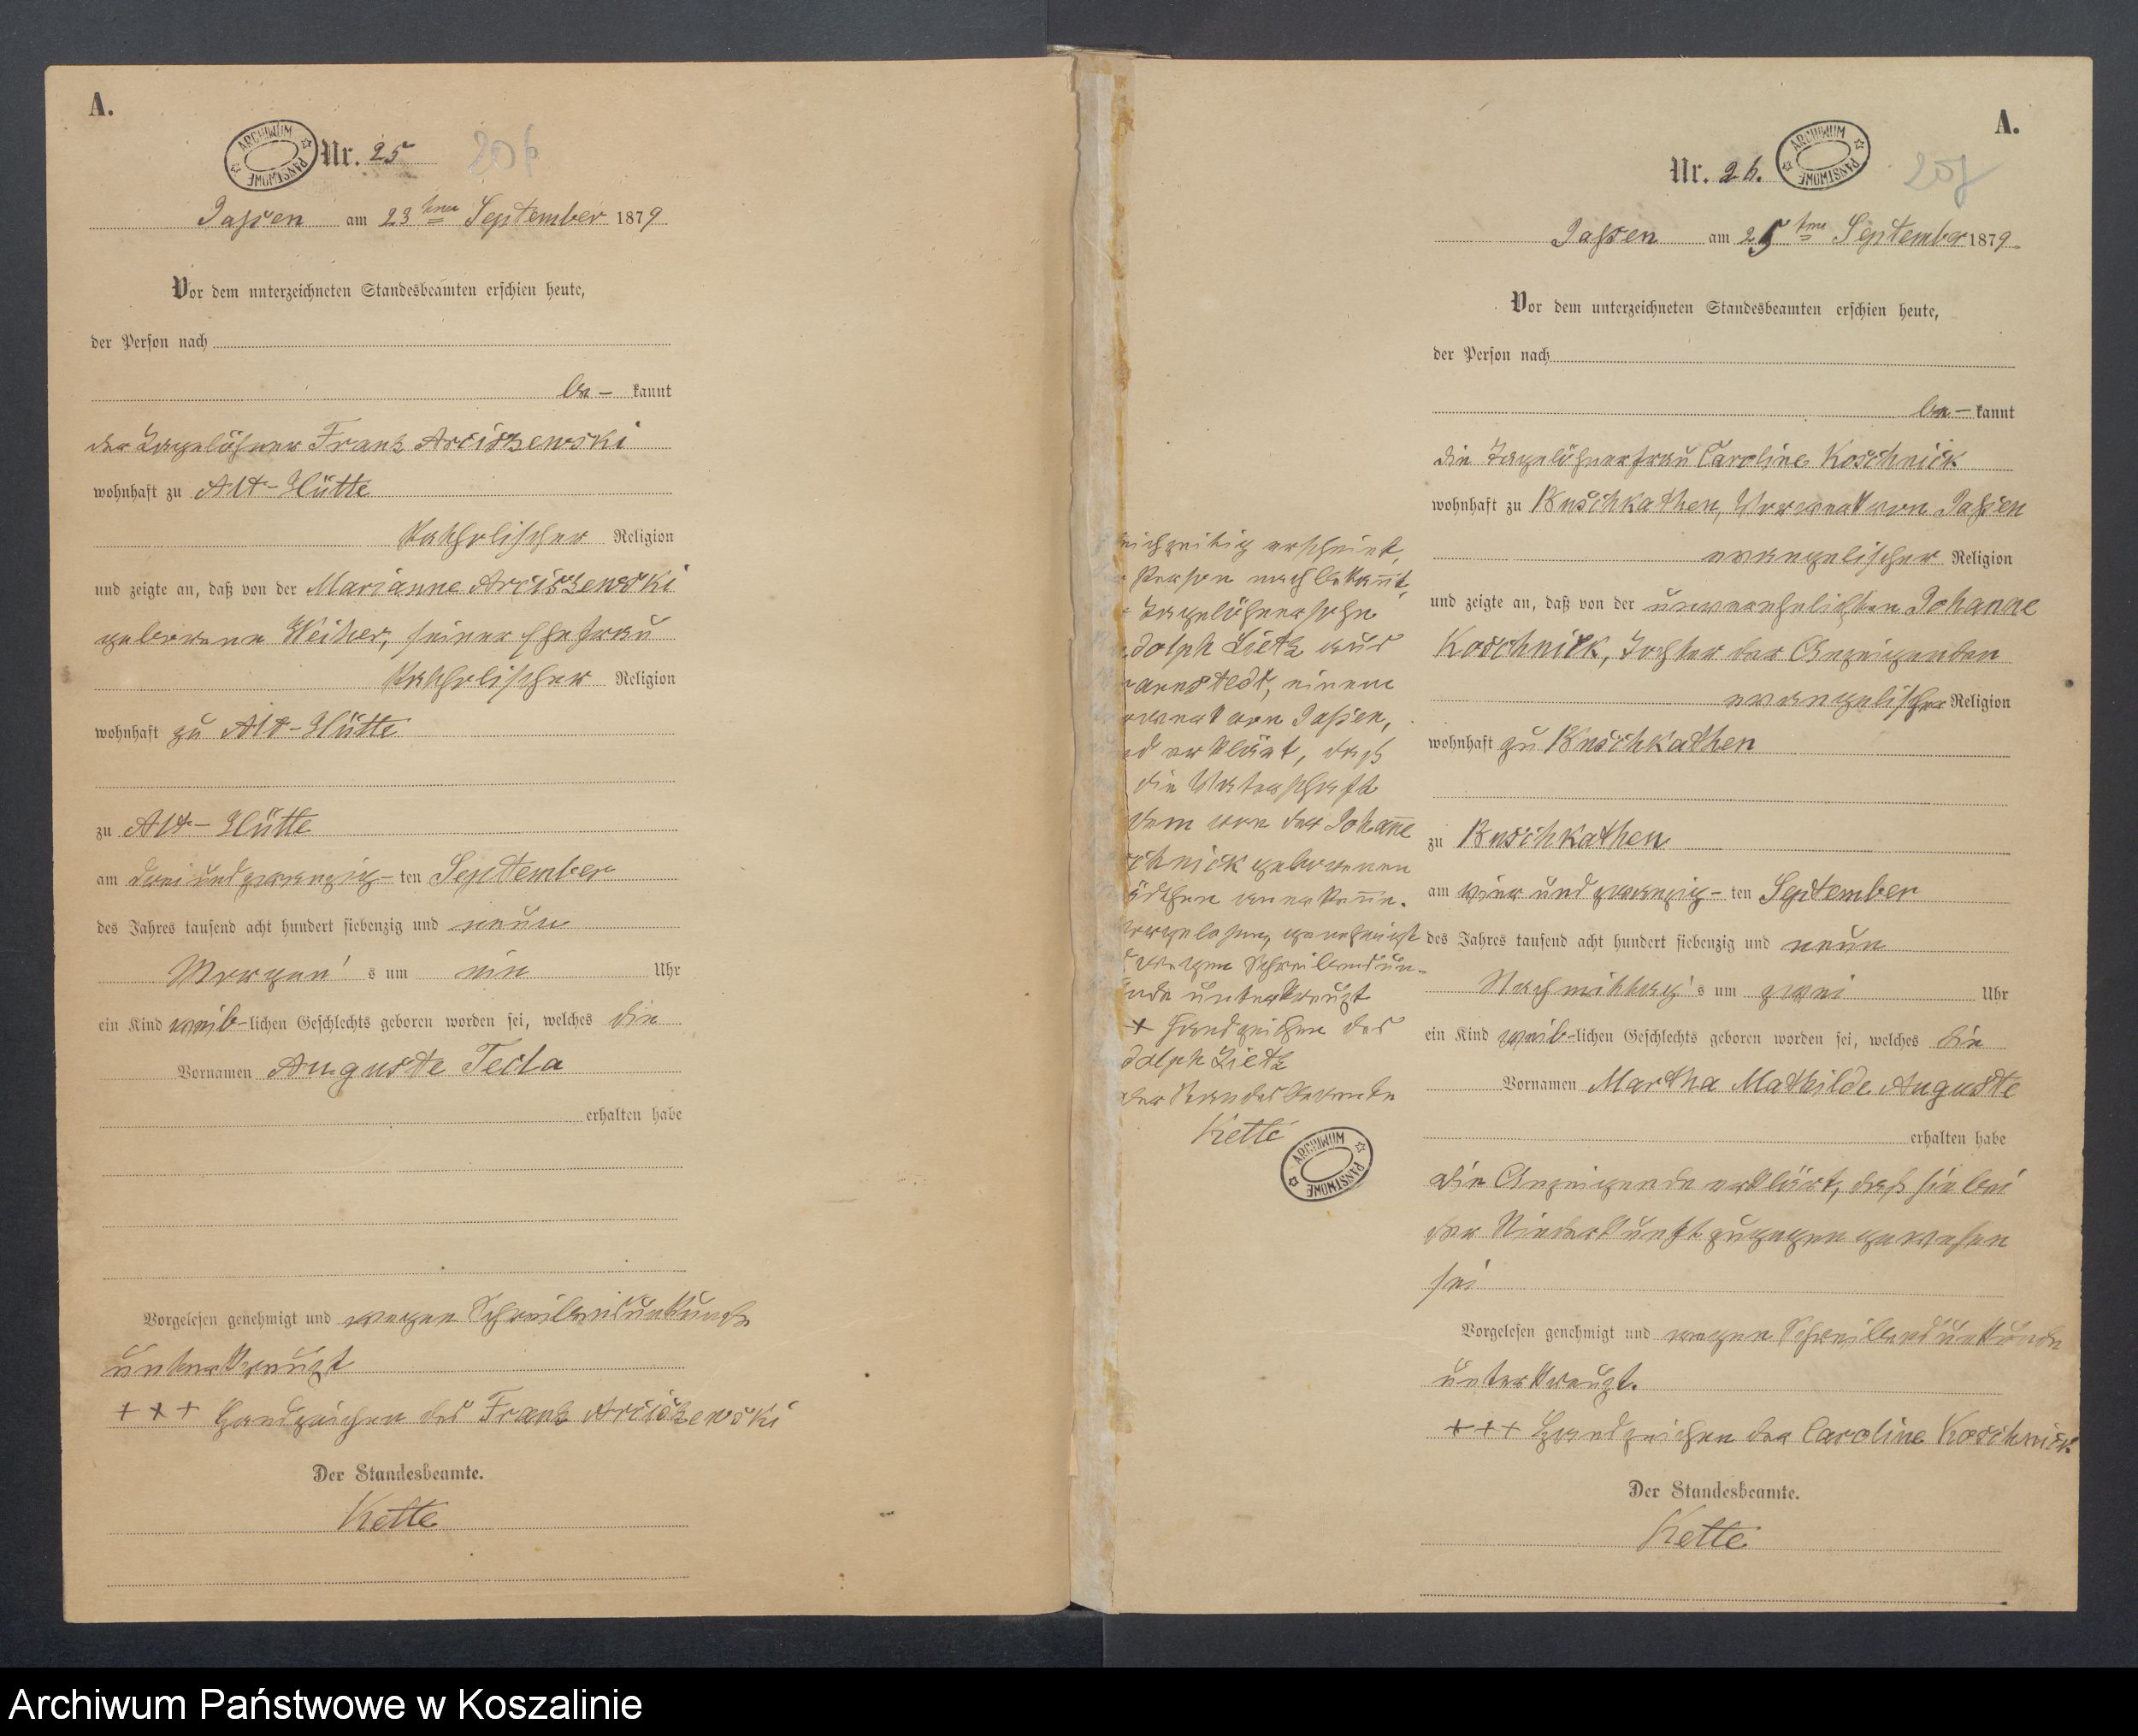 A.
ARCHIWUM PAŃSTWOWE
Nr. 25
206
Jassen am 23ten September 1879
Vor dem unterzeichneten Standesbeamten erschien heute,
der Person nach
be- kannt
der Tagelöhner Franz Arciszewski
wohnhaft zu Alt-Hütte
katholischer Religion
und zeigte an, daß von der Marianne Arciszewski
geborene Weiher, seiner Ehefrau
katholischer Religion
wohnhaft zu Alt-Hütte
zu Alt-Hütte
am drei und zwanzig- ten September
des Jahres tausend acht hundert siebenzig und neun
Morgen's um ein Uhr
ein Kind weib-lichen Geschlechts geboren worden sei, welches die
Vornamen Auguste Tecla
erhalten habe
Vorgelesen genehmigt und wegen Schreibensunkunde
unterkreuzt
+++ Handzeichen des Franz Arciszewski
Der Standesbeamte.
Kette
A.
Nr. 26.
ARCHIWUM PAŃSTWOWE
207
Jassen am 25ten September 1879
Vor dem unterzeichneten Standesbeamten erschien heute,
der Person nach
be- kannt
die Tagelöhnerfrau Caroline Koschnick
wohnhaft zu Buschkathen, Vorwerk von Jassen
evangelischer Religion
und zeigte an, daß von der unverehelichten Johanne
Koschnick, Tochter der Anzeigenden
evangelischer Religion
wohnhaft zu Buschkathen
zu Buschkathen
am vier und zwanzig- ten September
des Jahres tausend acht hundert siebenzig und neun
Nachmittag's um zwei Uhr
ein Kind weib-lichen Geschlechts geboren worden sei, welches die
Vornamen Martha Mathilde Auguste
erhalten habe
Die Anzeigende erklärt, daß sie bei
der Niederkunft zugegen gewesen
sei
Vorgelesen genehmigt und wegen Schreibensunkunde
unterkreuzt.
+++ Handzeichen der Caroline Koschnick
Der Standesbeamte.
Kette
eichzeitig erscheint,
Person nach bekannt,
Tagelöhnersohn
dolph Lietz aus
arnstedt, einem
orwerk von Jassen,
nd erklärt, daß
die Vaterschaft
dem von der Johanne
schnick geborenen
ädchen anerkenne.
orgelesen, genehmigt
wegen Schreibensun-
unde unterkreuzt
+ Handzeichen des
dolph Lietz
der Standesbeamte
Kette
ARCHIWUM PAŃSTWOWE
Archiwum Państwowe w Koszalinie